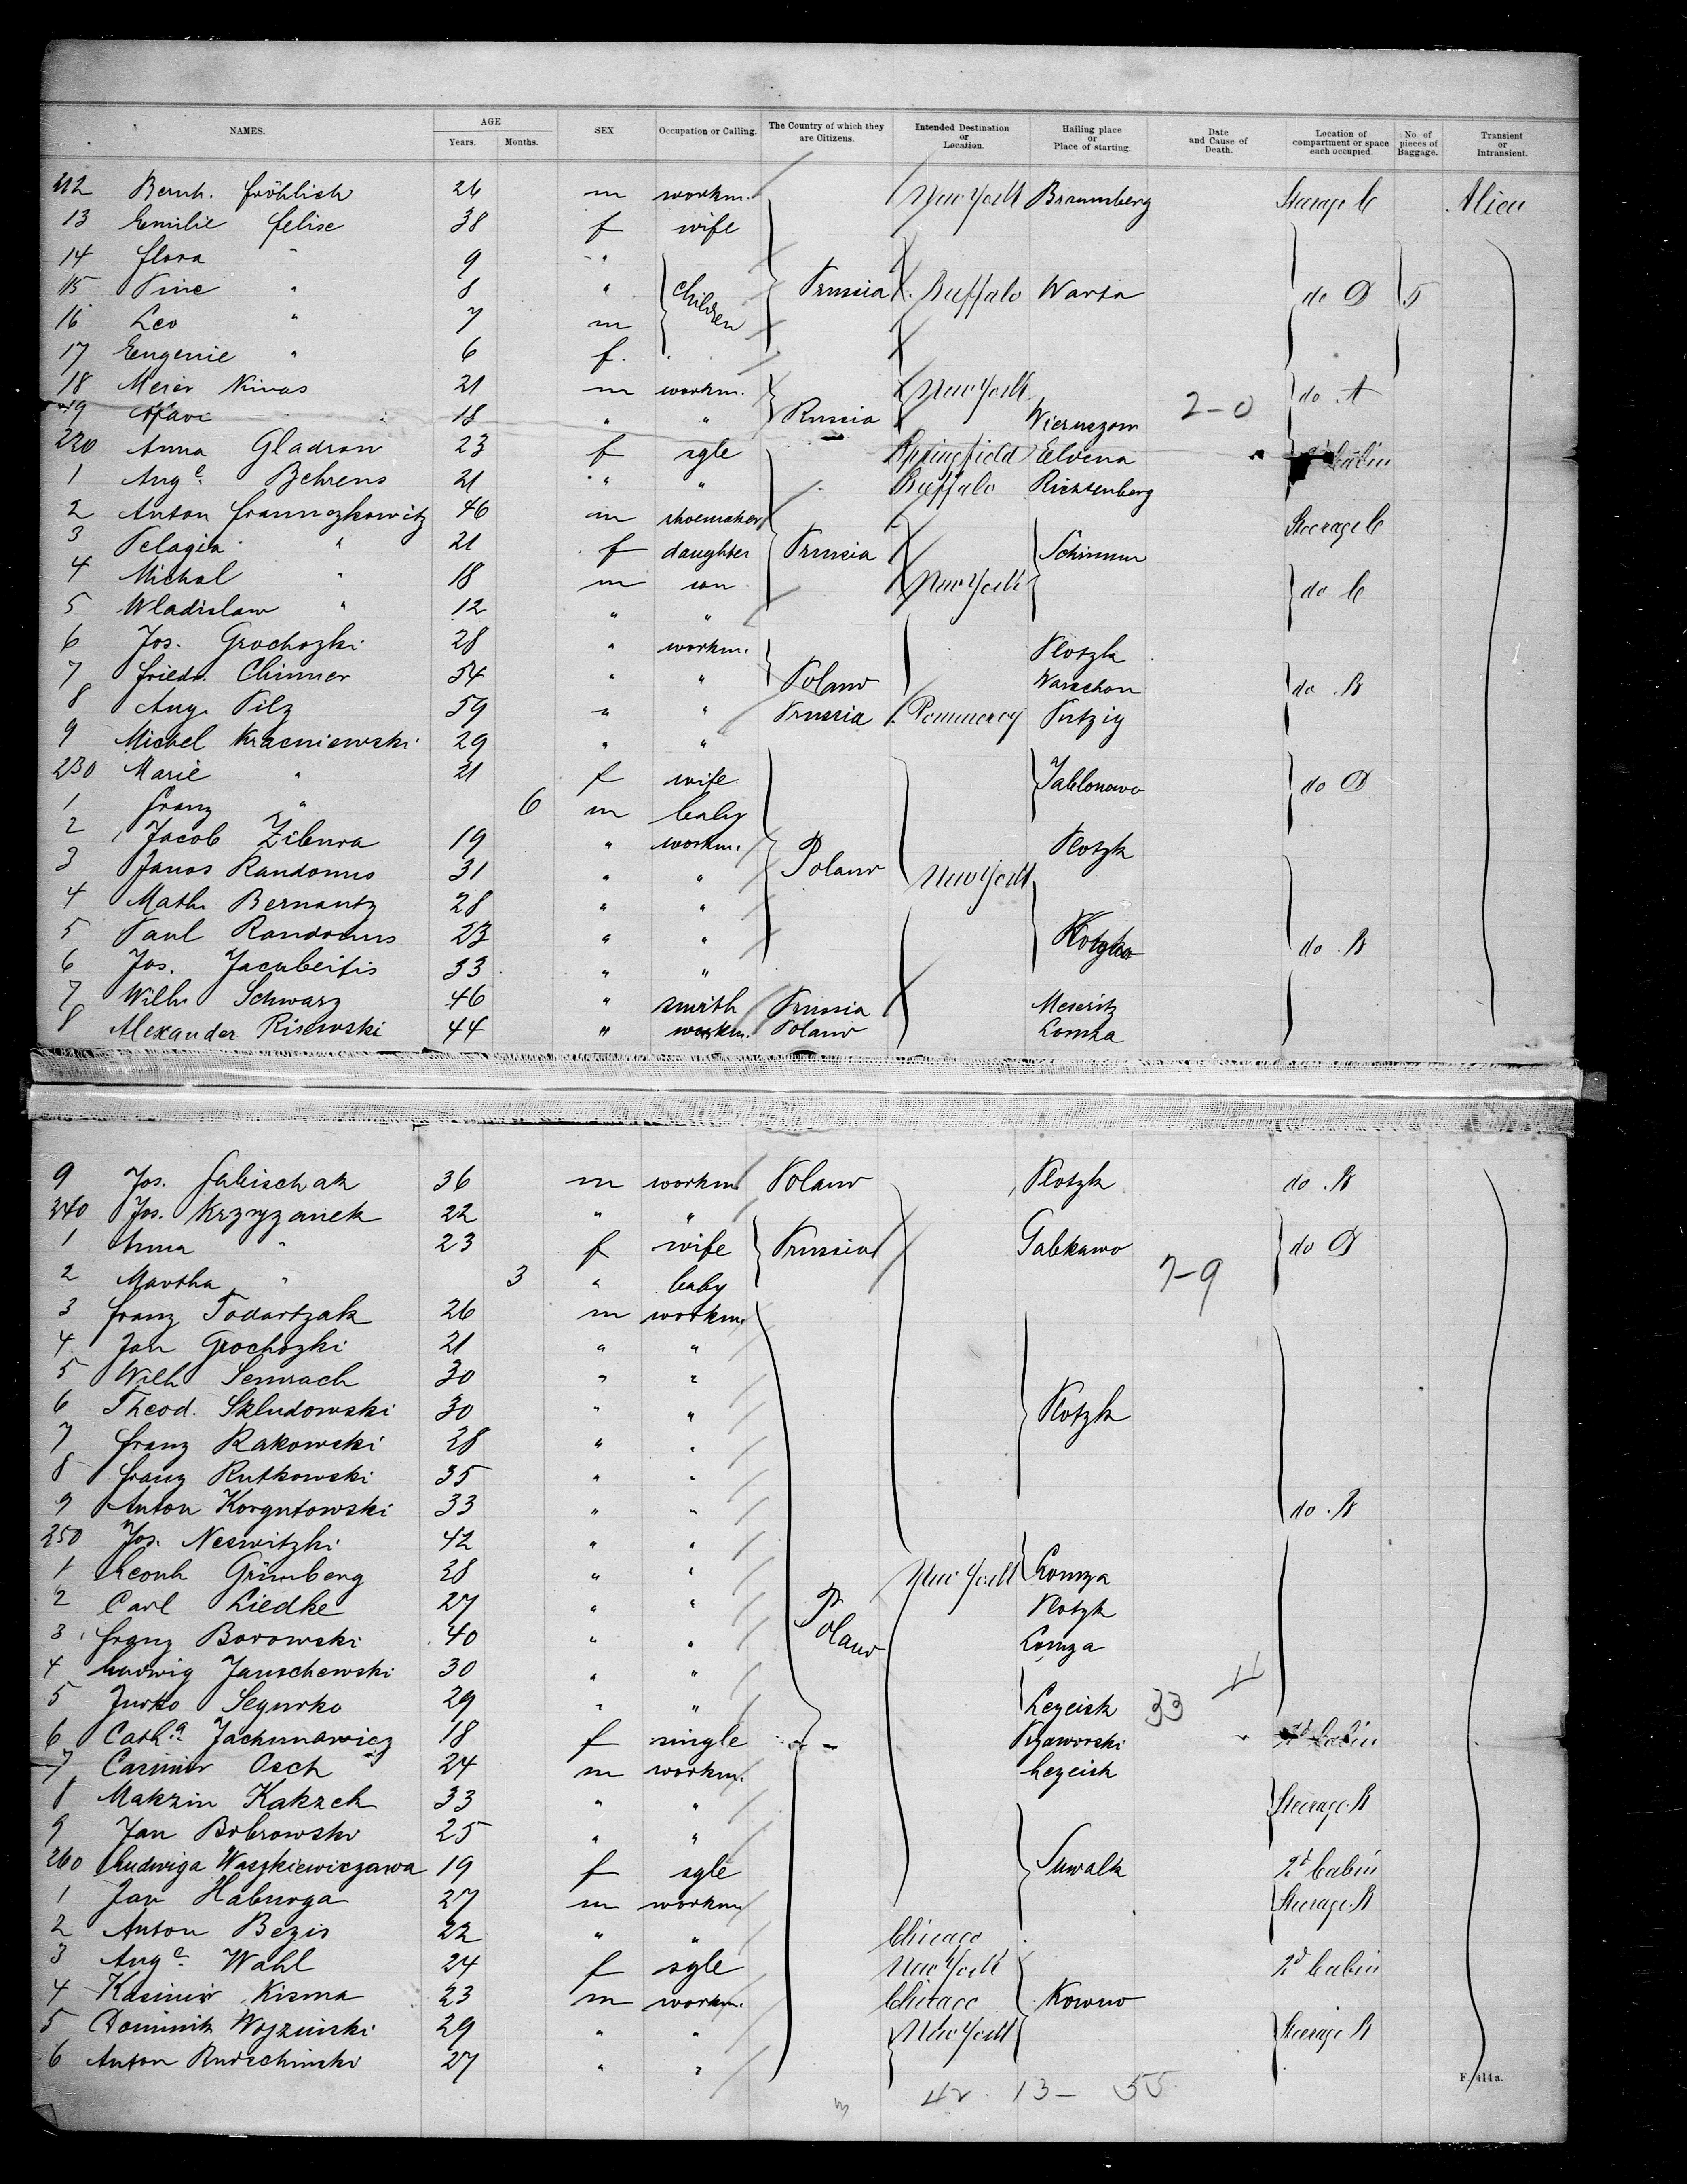 NAMES. AGE Years. Months. SEX Occupation or Calling. The Country of which they are Citizens. Intended Destination or Location. Hailing place or Place of starting. Date and Cause of Death. Location of compartment or space each occupied. No. of pieces of Baggage. Transient or Intransient.
212 Bernh. Fröhlich 26 m workm. New York Braunsberg Steerage C Alien
13 Emilie Felise 38 f wife
14 Flora " 9 "
15 " 8 " children Prussia Buffalo Warta do D 5
16 Leo " 7 m
17 Eugenie " 6 f.
18 Meier Kivas 21 m workm. New York do A
19 18 " " Russia Wieruszow 2-0
220 Anna Gladron 23 f sgle Springfield Elvena 2d Cabin
1 Auge. Behrens 21 " " Buffalo Richtenberg
2 Anton Frannczkowitz 46 m shoemaker Steerage C
3 Pelagia " 21 f daughter Prussia Schimm
4 Michal " 18 m son New York do C
5 Wladislaw " 12 " "
6 Jos. Grochozki 28 " workm. Plotzk
7 Friedr. Chinner 54 " " Poland Warschau do B
8 Aug. Pilz 59 " " Prussia Pommeroy Putzig
9 Michel Kraeniewski 29 " "
230 Marie " 21 f wife Jablonowo do D
1 Franz " 6 m baby
2 Jacob Zibura 19 " workm. Plotzk
3 Janos Randomus 31 " " Poland New York
4 Math. Bernantz 28 " "
5 Paul Randomus 23 " " do B
6 Jos. Jacubeitis 33 " "
7 Wilh. Schwarz 46 " smith Prussia Meseritz
8 Alexander Risewski 44 " workm. Poland Lomza
9 Jos. Fabischak 36 m workm. Poland Plotzk do B
240 Jos. Krzyzanek 22 " "
1 Anna " 23 f wife Prussia Gabkawo do D
2 Martha " 3 " baby 7-9
3 Franz Todartzak 26 m workm.
4 Jan Grochozki 21 " "
5 Wilh Semrach 30 " "
6 Theod. Skludowski 30 " " Plotzk
7 Franz Rakowski 28 " "
8 Franz Rutkowski 35 " "
9 Anton Korgutowski 33 " " do B
250 Jos. Neswitzki 42 " "
1 Leonh Grünberg 28 " " New York Lomza
2 Carl Liedke 27 " " Poland Plotzk
3 Franz Borowski 40 " " Lomza
4 Ludwig Januschewski 30 " "
5 Jurko Segurko 29 " " Lezeisk 33
6 Catha. Jachimowicz 18 f single 2d Cabin
7 Casimir Osch 24 m workm. Lezeisk
8 Makzin Kakzeh 33 " " Steerage B
9 Jan Bobrowski 25 " "
260 Ludwiga Waszkiewiczawa 19 f sgle Suwalk 2d Cabin
1 Jan Haburga 27 m workm. Steerage B
2 Anton Bezis 22 " " Chicago
3 Auge. Wahl 24 f sgle New York 2d Cabin
4 Kasimir Kisma 23 m workm. Chicago Kowno
5 Dominik Wojzinski 29 " " New York Steerage B
6 Anton Rudschinski 27 " "
42 13- 55
F. 414a.